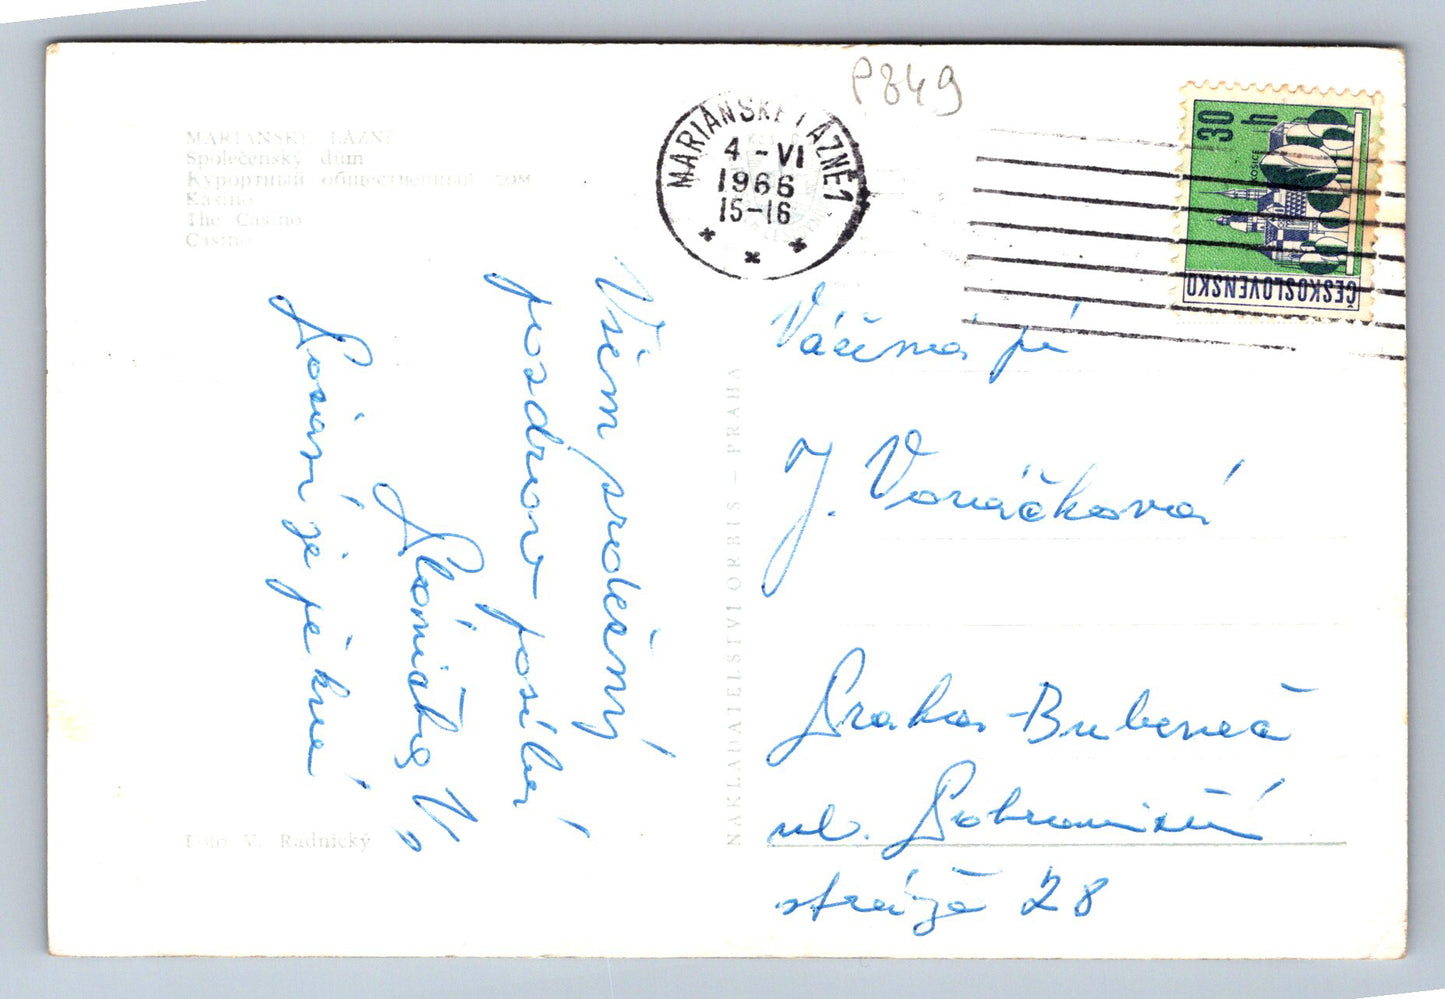 P849
MARIÁNSKÉ LÁZNĚ
Společenský dům
Курортный общественный дом
Kasino
The Casino
Casino
MARIÁNSKÉ LÁZNĚ 1
4 -VI
1966
15-16
30 h
KOŠICE
ČESKOSLOVENSKO
Všem srdečný
pozdrav posílá
V.
je pěkné
Foto V. Radnický
NAKLADATELSTVÍ ORBIS – PRAHA
Vážená pí
J. Vonáčková
Praha-Bubeneč
ul.
28